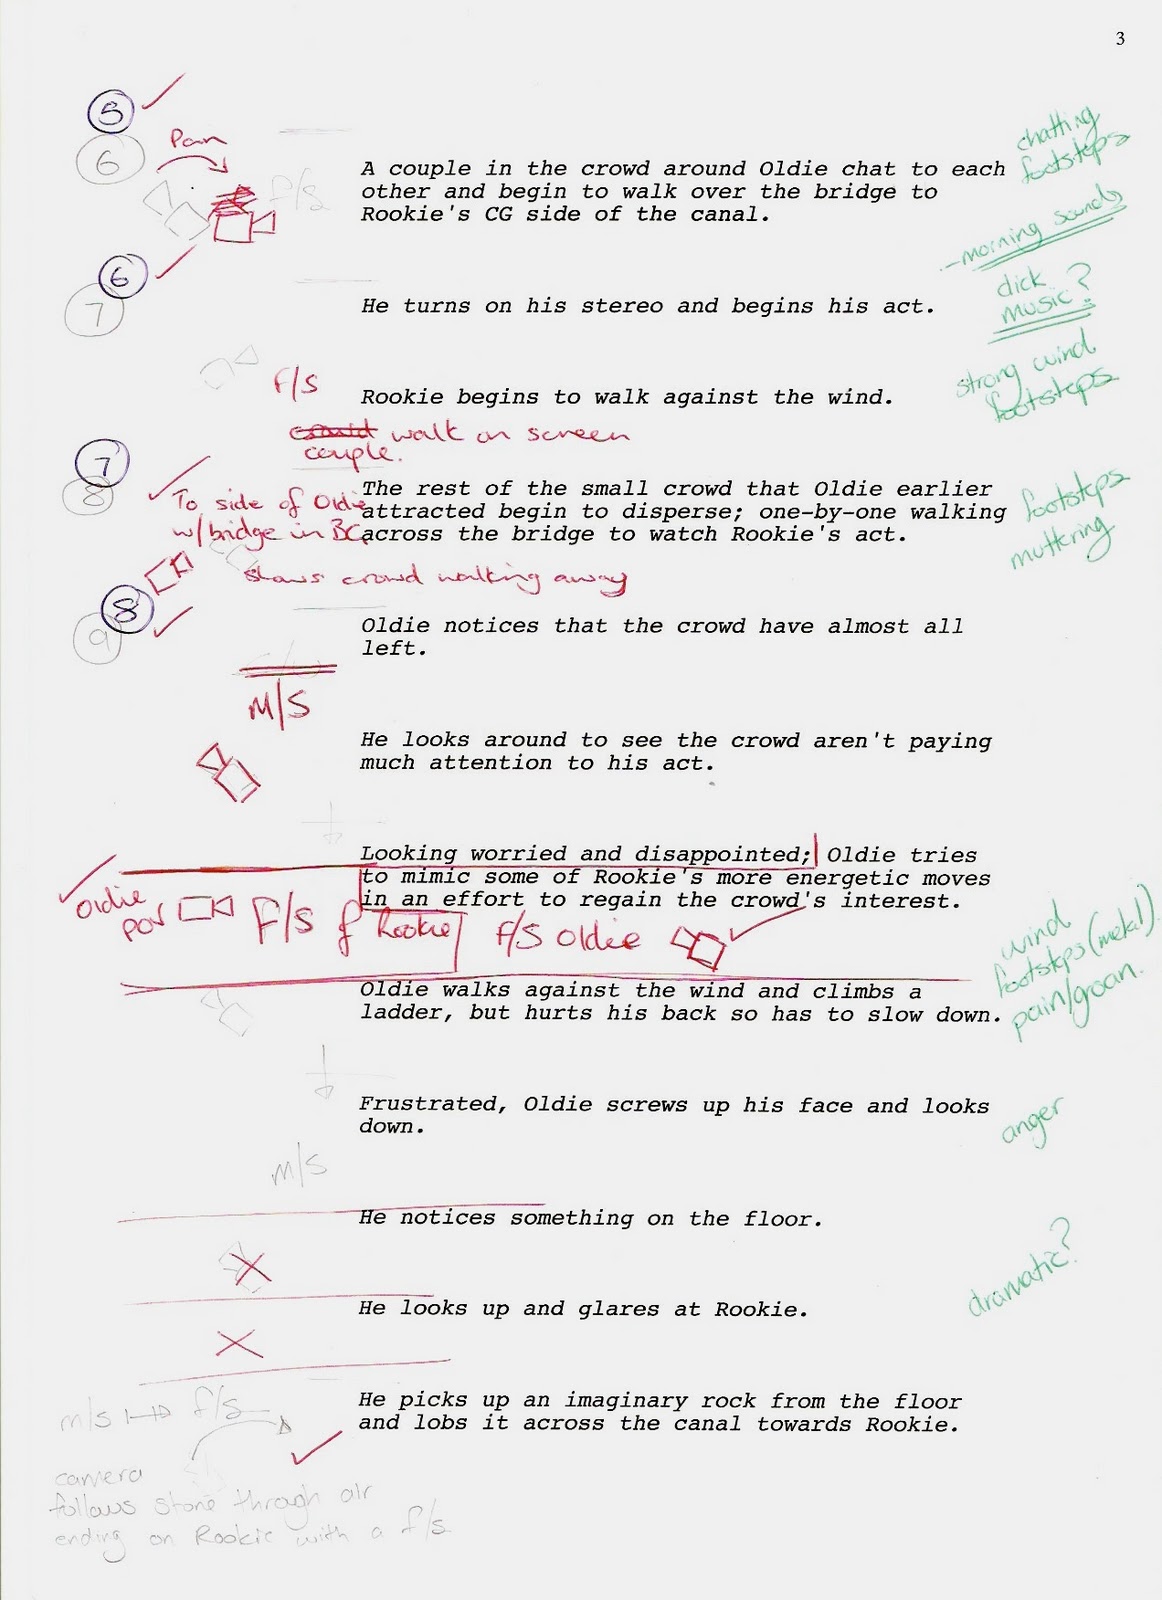 3
5
6
Pan
f/s
chatting
footsteps
A couple in the crowd around Oldie chat to each
other and begin to walk over the bridge to
Rookie's CG side of the canal.
-morning sounds
6
7
He turns on his stereo and begins his act.
dick
music?
F/S
Rookie begins to walk against the wind.
strong wind
footsteps
walk on screen
couple.
7
8
To side of Oldie
w/bridge in BG
The rest of the small crowd that Oldie earlier
attracted begin to disperse; one-by-one walking
across the bridge to watch Rookie's act.
footsteps
muttering
shows crowd walking away
8
9
Oldie notices that the crowd have almost all
left.
M/S
He looks around to see the crowd aren't paying
much attention to his act.
Looking worried and disappointed; Oldie tries
to mimic some of Rookie's more energetic moves
in an effort to regain the crowd's interest.
Oldie
POV
F/S of Rookie
F/S Oldie
wind
footsteps (metal)
pain/groan.
Oldie walks against the wind and climbs a
ladder, but hurts his back so has to slow down.
Frustrated, Oldie screws up his face and looks
down.
anger
m/s
He notices something on the floor.
dramatic?
He looks up and glares at Rookie.
m/s f/s
He picks up an imaginary rock from the floor
and lobs it across the canal towards Rookie.
camera
follows stone through air
ending on Rookie with a f/s